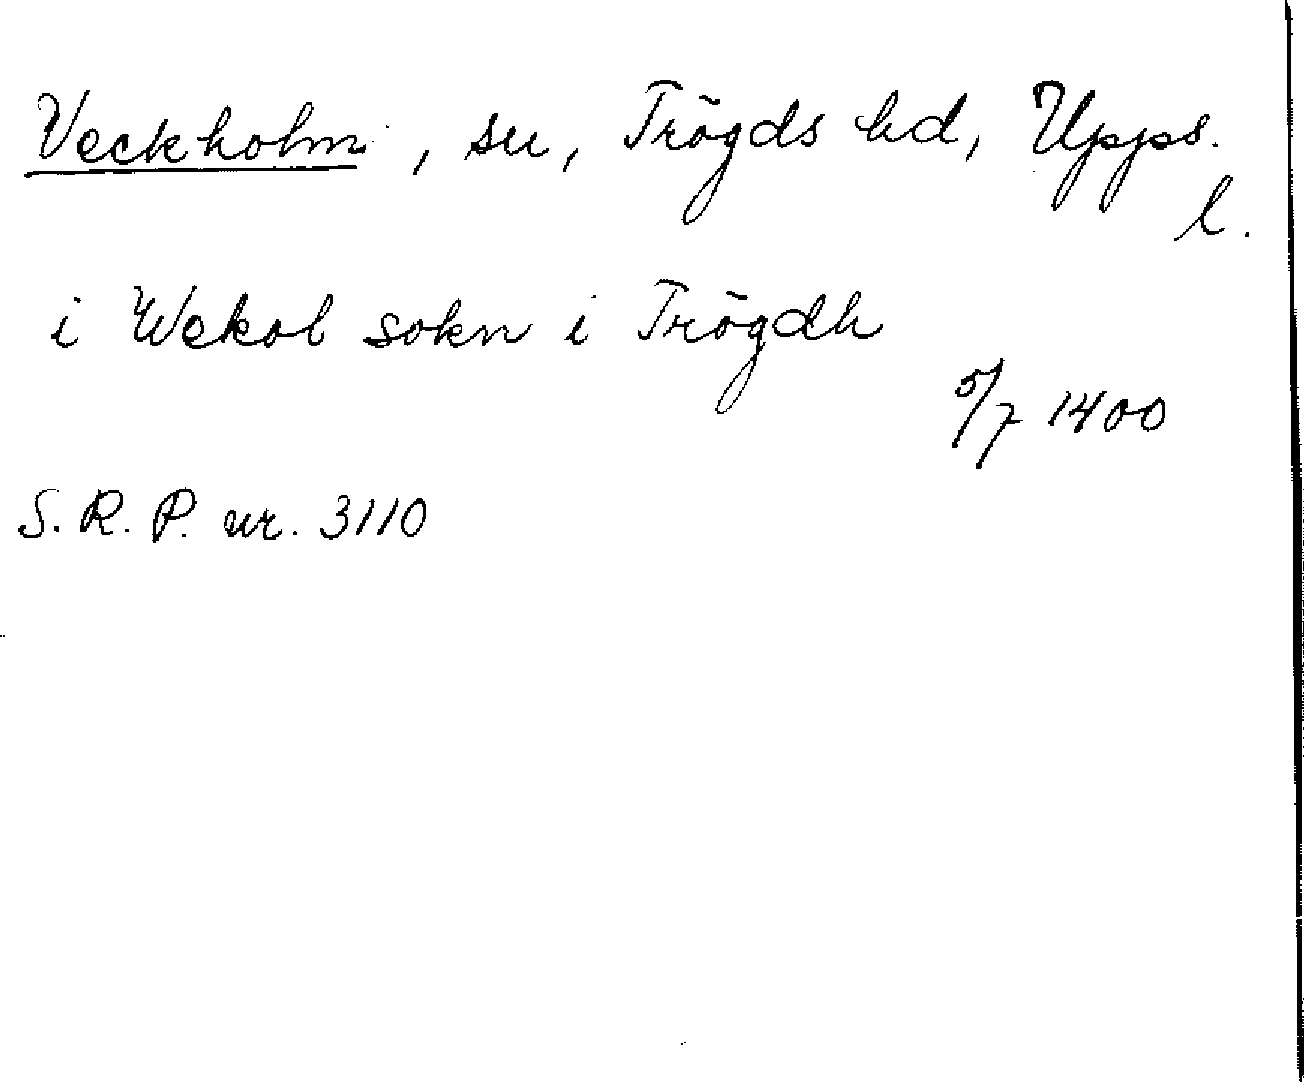 Veckholm, sn, Trögds hd, Upps.
l.
i Wekol sokn i Trögdh
5/7 1400
S. R. P. nr. 3110